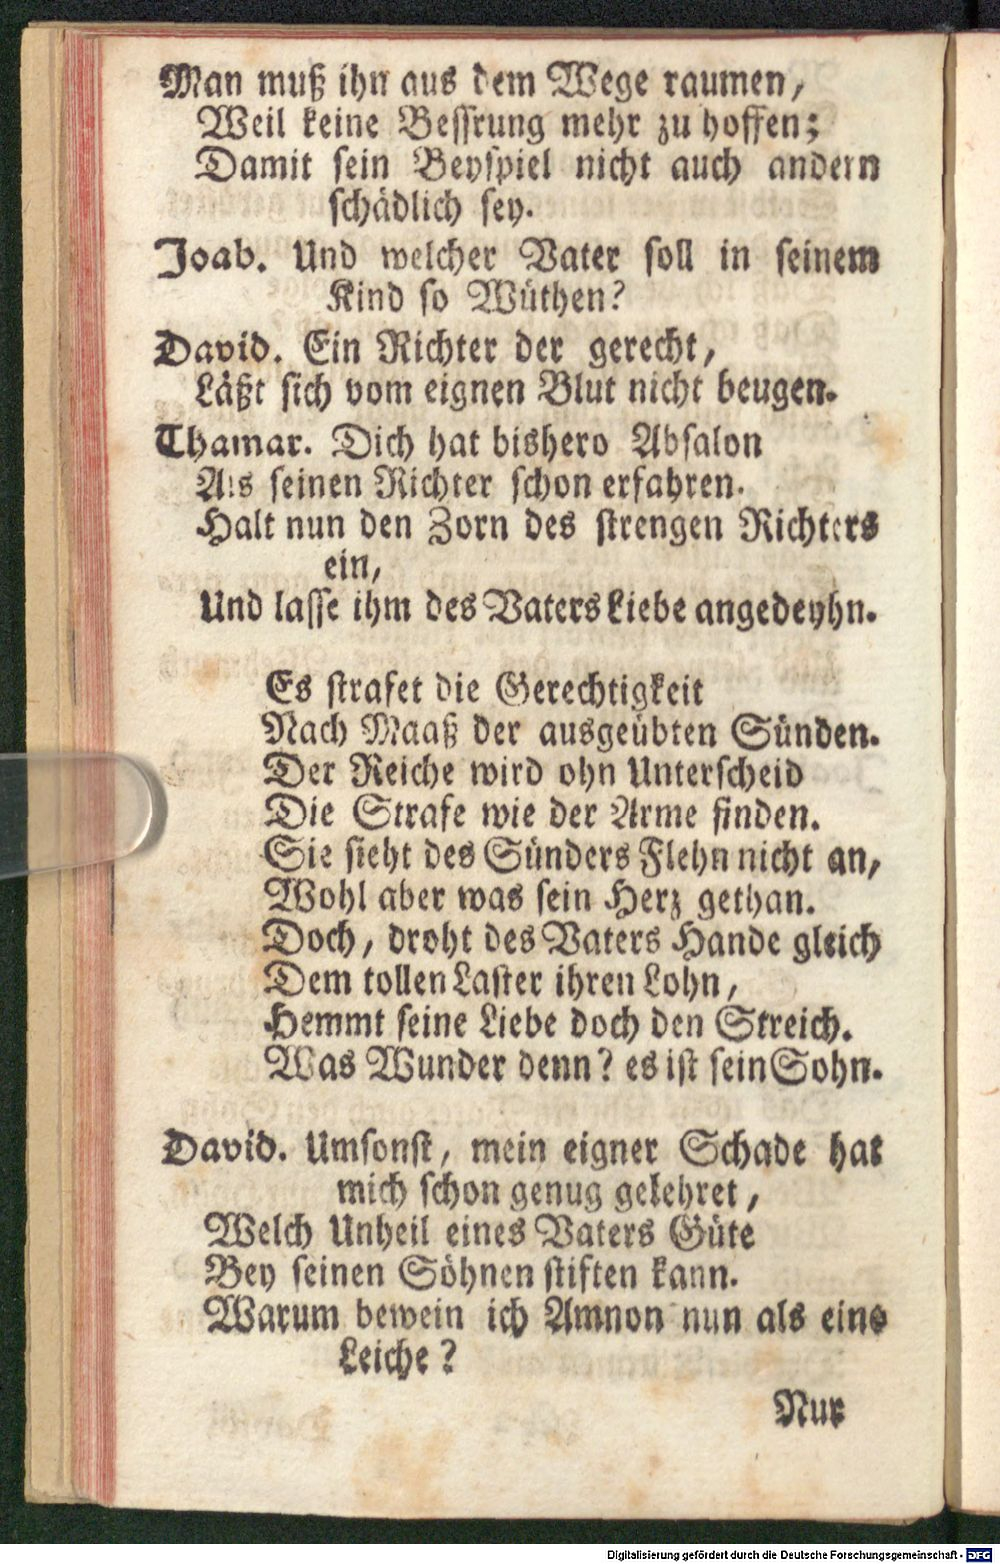 Man muß ihn aus dem Wege raumen,
Weil keine Bessrung mehr zu hoffen;
Damit sein Beyspiel nicht auch andern
schädlich sey.
Joab. Und welcher Vater soll in seinem
Kind so Wüthen?
David. Ein Richter der gerecht,
Läßt sich vom eignen Blut nicht beugen.
Thamar. Dich hat bishero Absalon
Als seinen Richter schon erfahren.
Halt nun den Zorn des strengen Richters
ein,
Und lasse ihm des Vaters Liebe angedeyhn.
Es strafet die Gerechtigkeit
Nach Maaß der ausgeübten Sünden.
Der Reiche wird ohn Unterscheid
Die Strafe wie der Arme finden.
Sie sieht des Sünders Flehn nicht an,
Wohl aber was sein Herz gethan.
Doch, droht des Vaters Hande gleich
Dem tollen Laster ihren Lohn,
Hemmt seine Liebe doch den Streich.
Was Wunder denn? es ist sein Sohn.
David. Umsonst, mein eigner Schade hat
mich schon genug gelehret,
Welch Unheil eines Vaters Güte
Bey seinen Söhnen stiften kann.
Warum bewein ich Amnon nun als eine
Leiche?
Nur
Digitalisierung gefördert durch die Deutsche Forschungsgemeinschaft - DFG